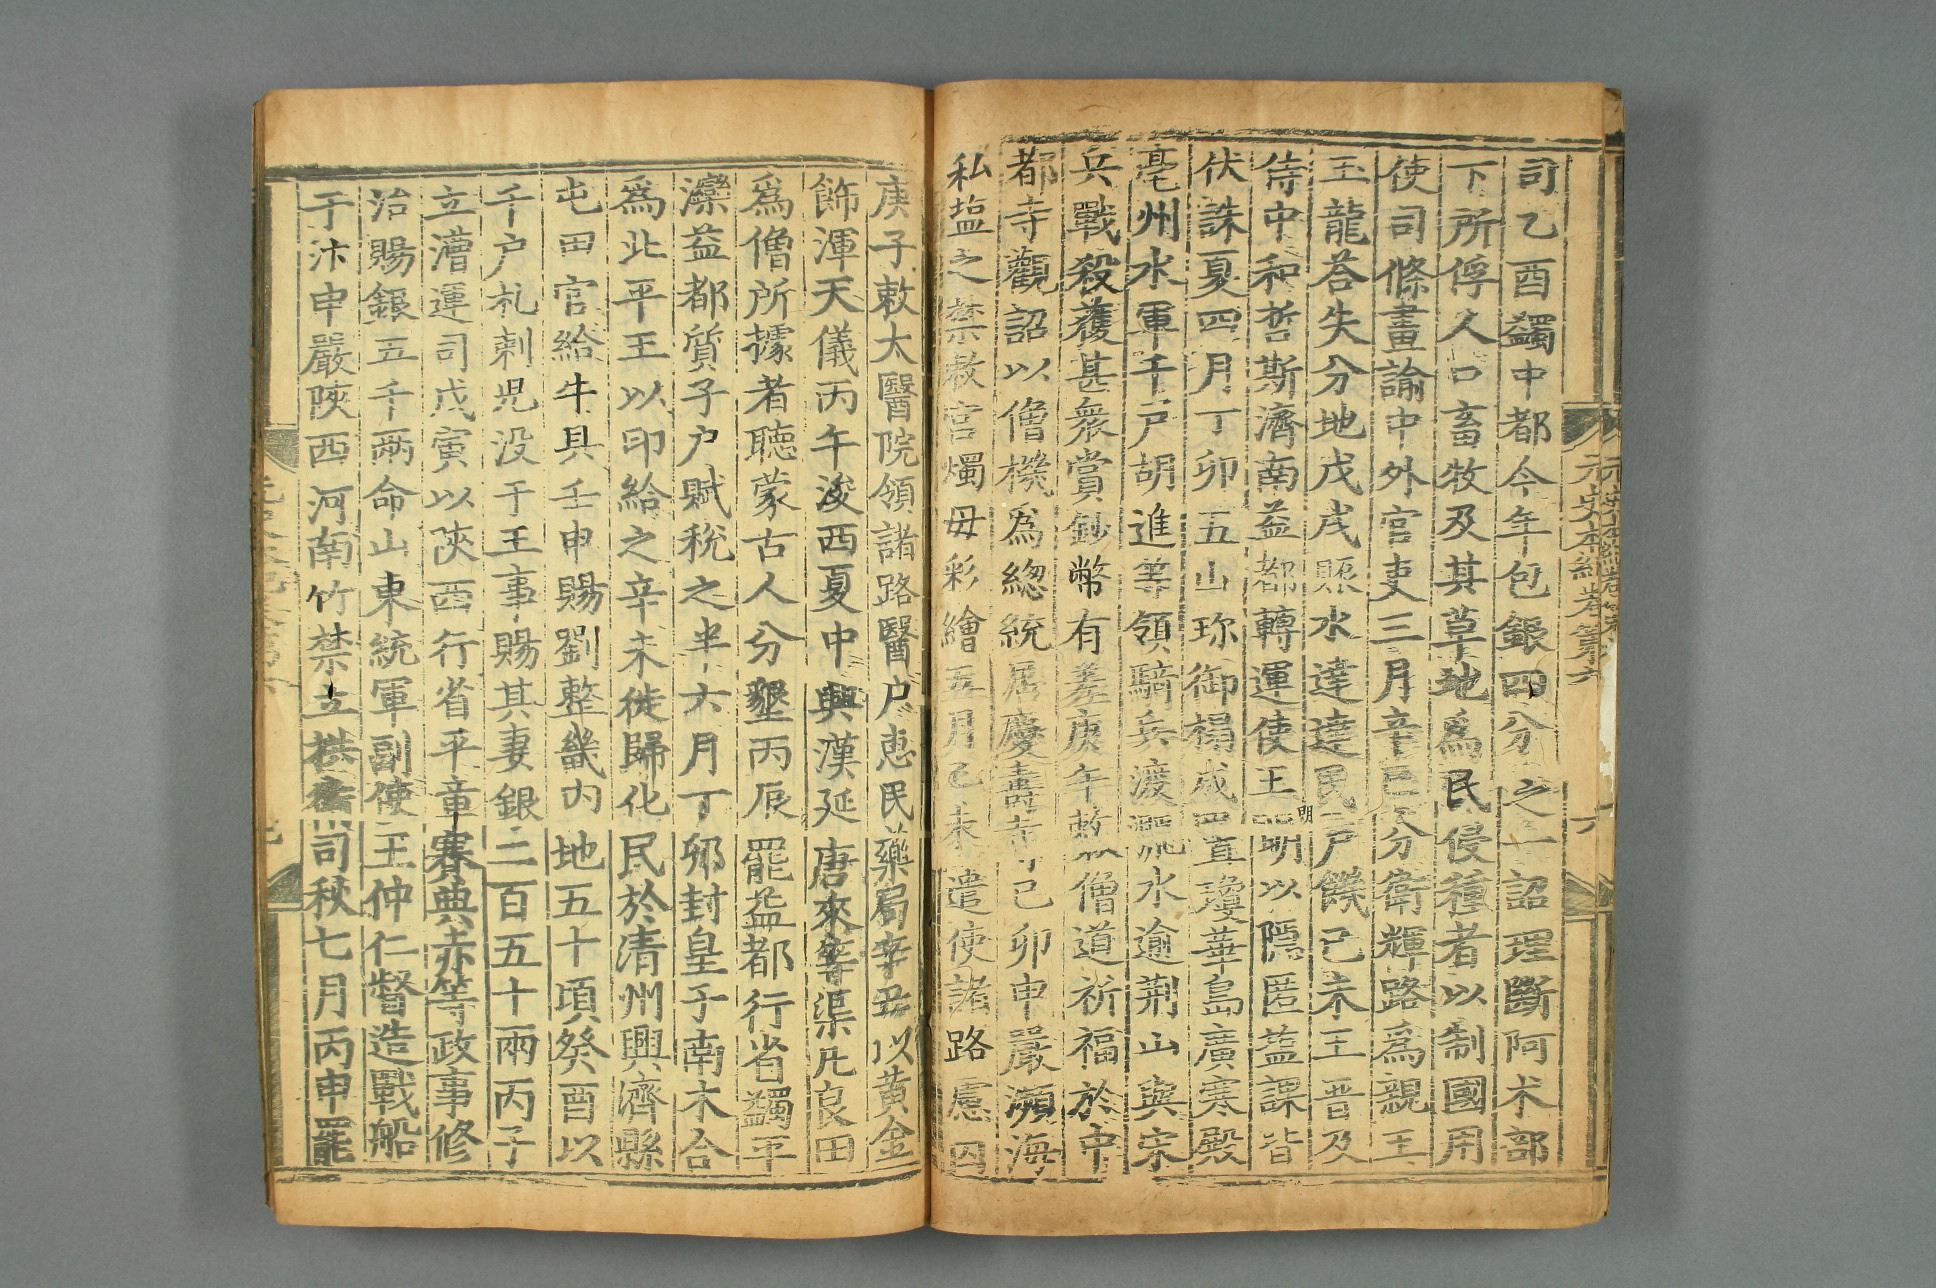 司乙酉蠲中都今年包銀四分之一詔理斷阿朮部
下所俘人口畜牧及其草地爲民侵種者以制國用
使司條畫諭中外官吏三月辛巳分衛輝路爲親王
玉龍荅失分地戊戌賑水達達民戶饑己未王晋及
侍中和哲斯濟南益都轉運使王明以隱匿鹽課皆
伏誅夏四月丁卯五山珍御榻成置瓊華島廣寒殿
亳州水軍千戶胡進等領騎兵渡淝水逾荆山與宋
兵戰殺獲甚衆賞鈔幣有差庚午敕僧道祈福於中
都寺觀詔以僧機爲緫統居慶壽寺己卯申嚴瀕海
私塩之禁敕宫燭毋彩繪五月乙未遣使諸路慮囚
庚子敕太醫院領諸路醫戶惠民藥局辛丑以黄金
飾渾天儀丙午浚西夏中興漢延唐來等渠凡良田
爲僧所據者聽蒙古人分墾丙辰罷益都行省蠲平
灤益都質子户賦稅之半六月丁卯封皇子南木合
爲北平王以印給之辛未徙歸化民於清州興濟縣
屯田官給牛具壬申賜劉整畿内地五十頃癸酉以
千户札剌兒没于王事賜其妻銀二百五十兩丙子
立漕運司戊寅以陝西行省平章賽典赤等政事修
治賜銀五千兩命山東統軍副使王仲仁督造戰船
于汴申嚴陝西河南竹禁立拱衛司秋七月丙申罷
元史本紀卷第六
六